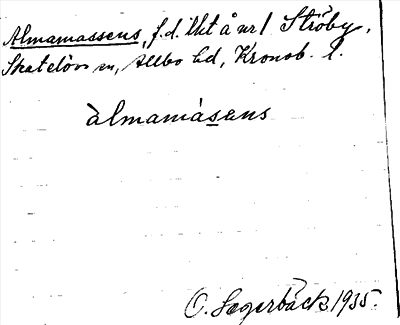 Almamassens, f.d. lht å nr 1 Ströby,
Skatelövs sn, Allbo hd, Kronob. l.
àlmamásens
O. Sagerbäck 1935.